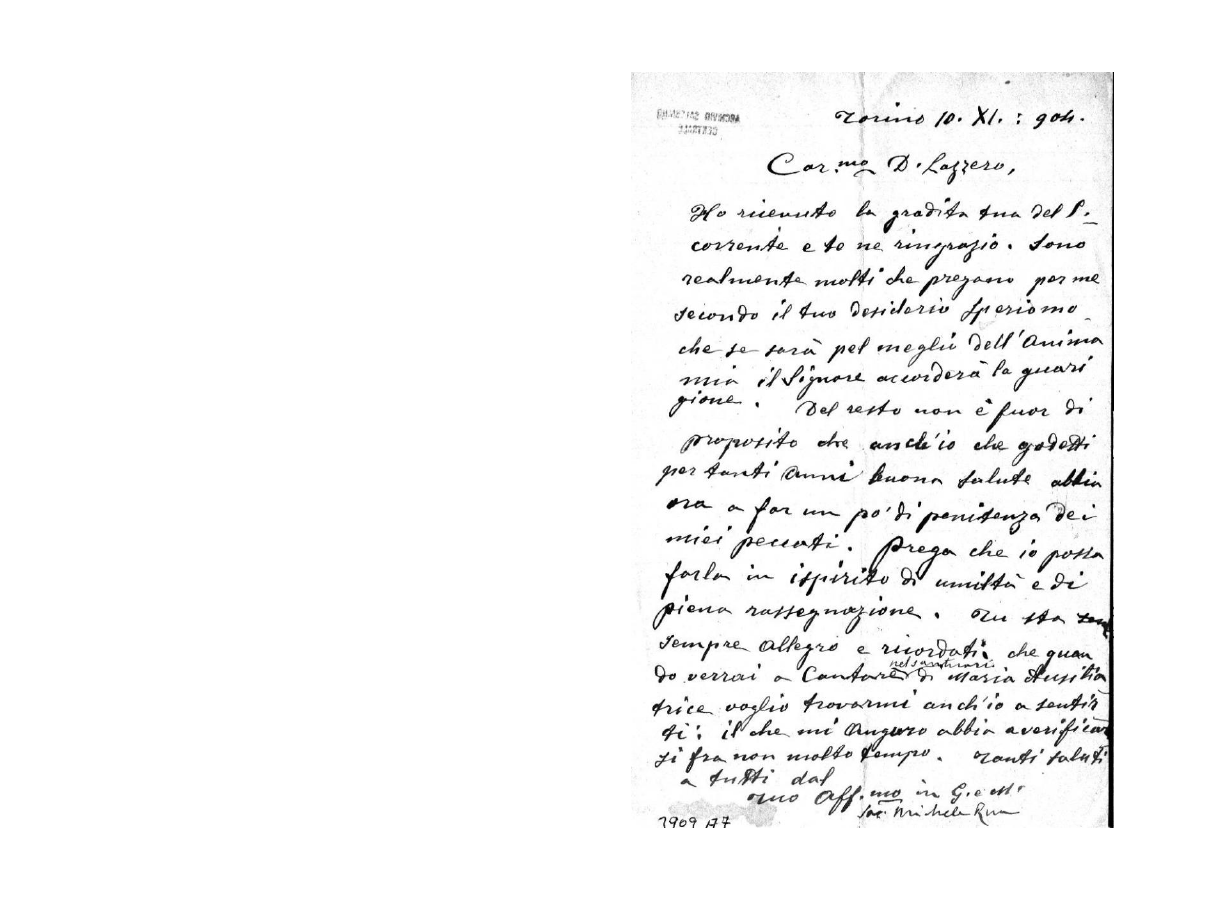 ARCHIVIO SALESIANO
CENTRALE
Torino 10. XI. : 904.
Car.mo D. Lazzero,
Ho ricevuto la gradita tua del P.
corrente e te ne ringrazio. Sono
realmente molti che pregano per me
secondo il tuo desiderio speriamo
che se sarà pel meglio dell'Anima
mia il Signore accorderà la guari
gione. Del resto non è fuor di
proposito che anch'io che godetti
per tanti Anni buona salute abbia
ora a far un po' di penitenza dei
miei peccati. Prega che io possa
farla in ispirito di umiltà e di
piena rassegnazione. Tu sta
sempre Allegro e ricordati che quan
do verrai a Cantare nel santuario di Maria Ausilia
trice voglio trovarmi anch'io a sentir
ti: il che mi Auguro abbia a verificar
si fra non molto tempo. Tanti saluti
a tutti dal
Tuo Aff.mo in G. e M.
Sac. Michele Rua
3909 A7